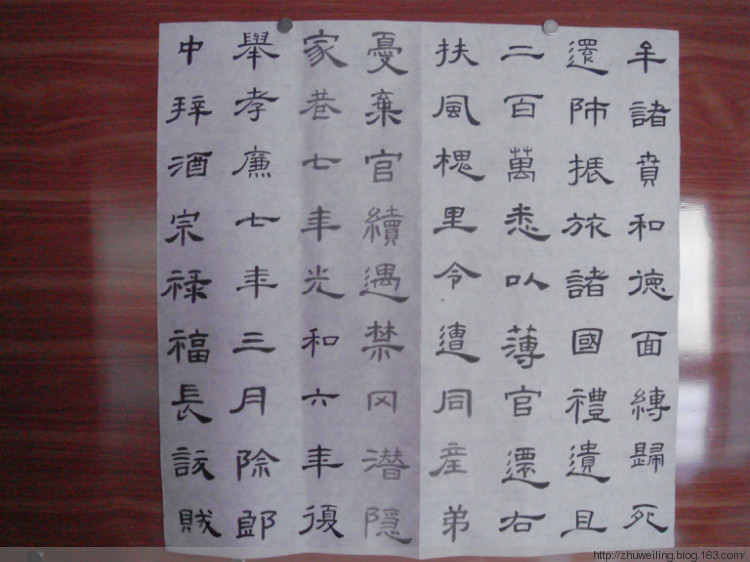 牟諸賁和德面縛歸死
還師振旅諸國禮遺且
二百萬悉以薄官遷右
扶風槐里令遭同產弟
憂棄官續遇禁冈潛隱
家巷七年光和六年復
舉孝廉七年三月除郎
中拜酒宗禄福長訞賊
http://zhuweiling.blog.163.com/